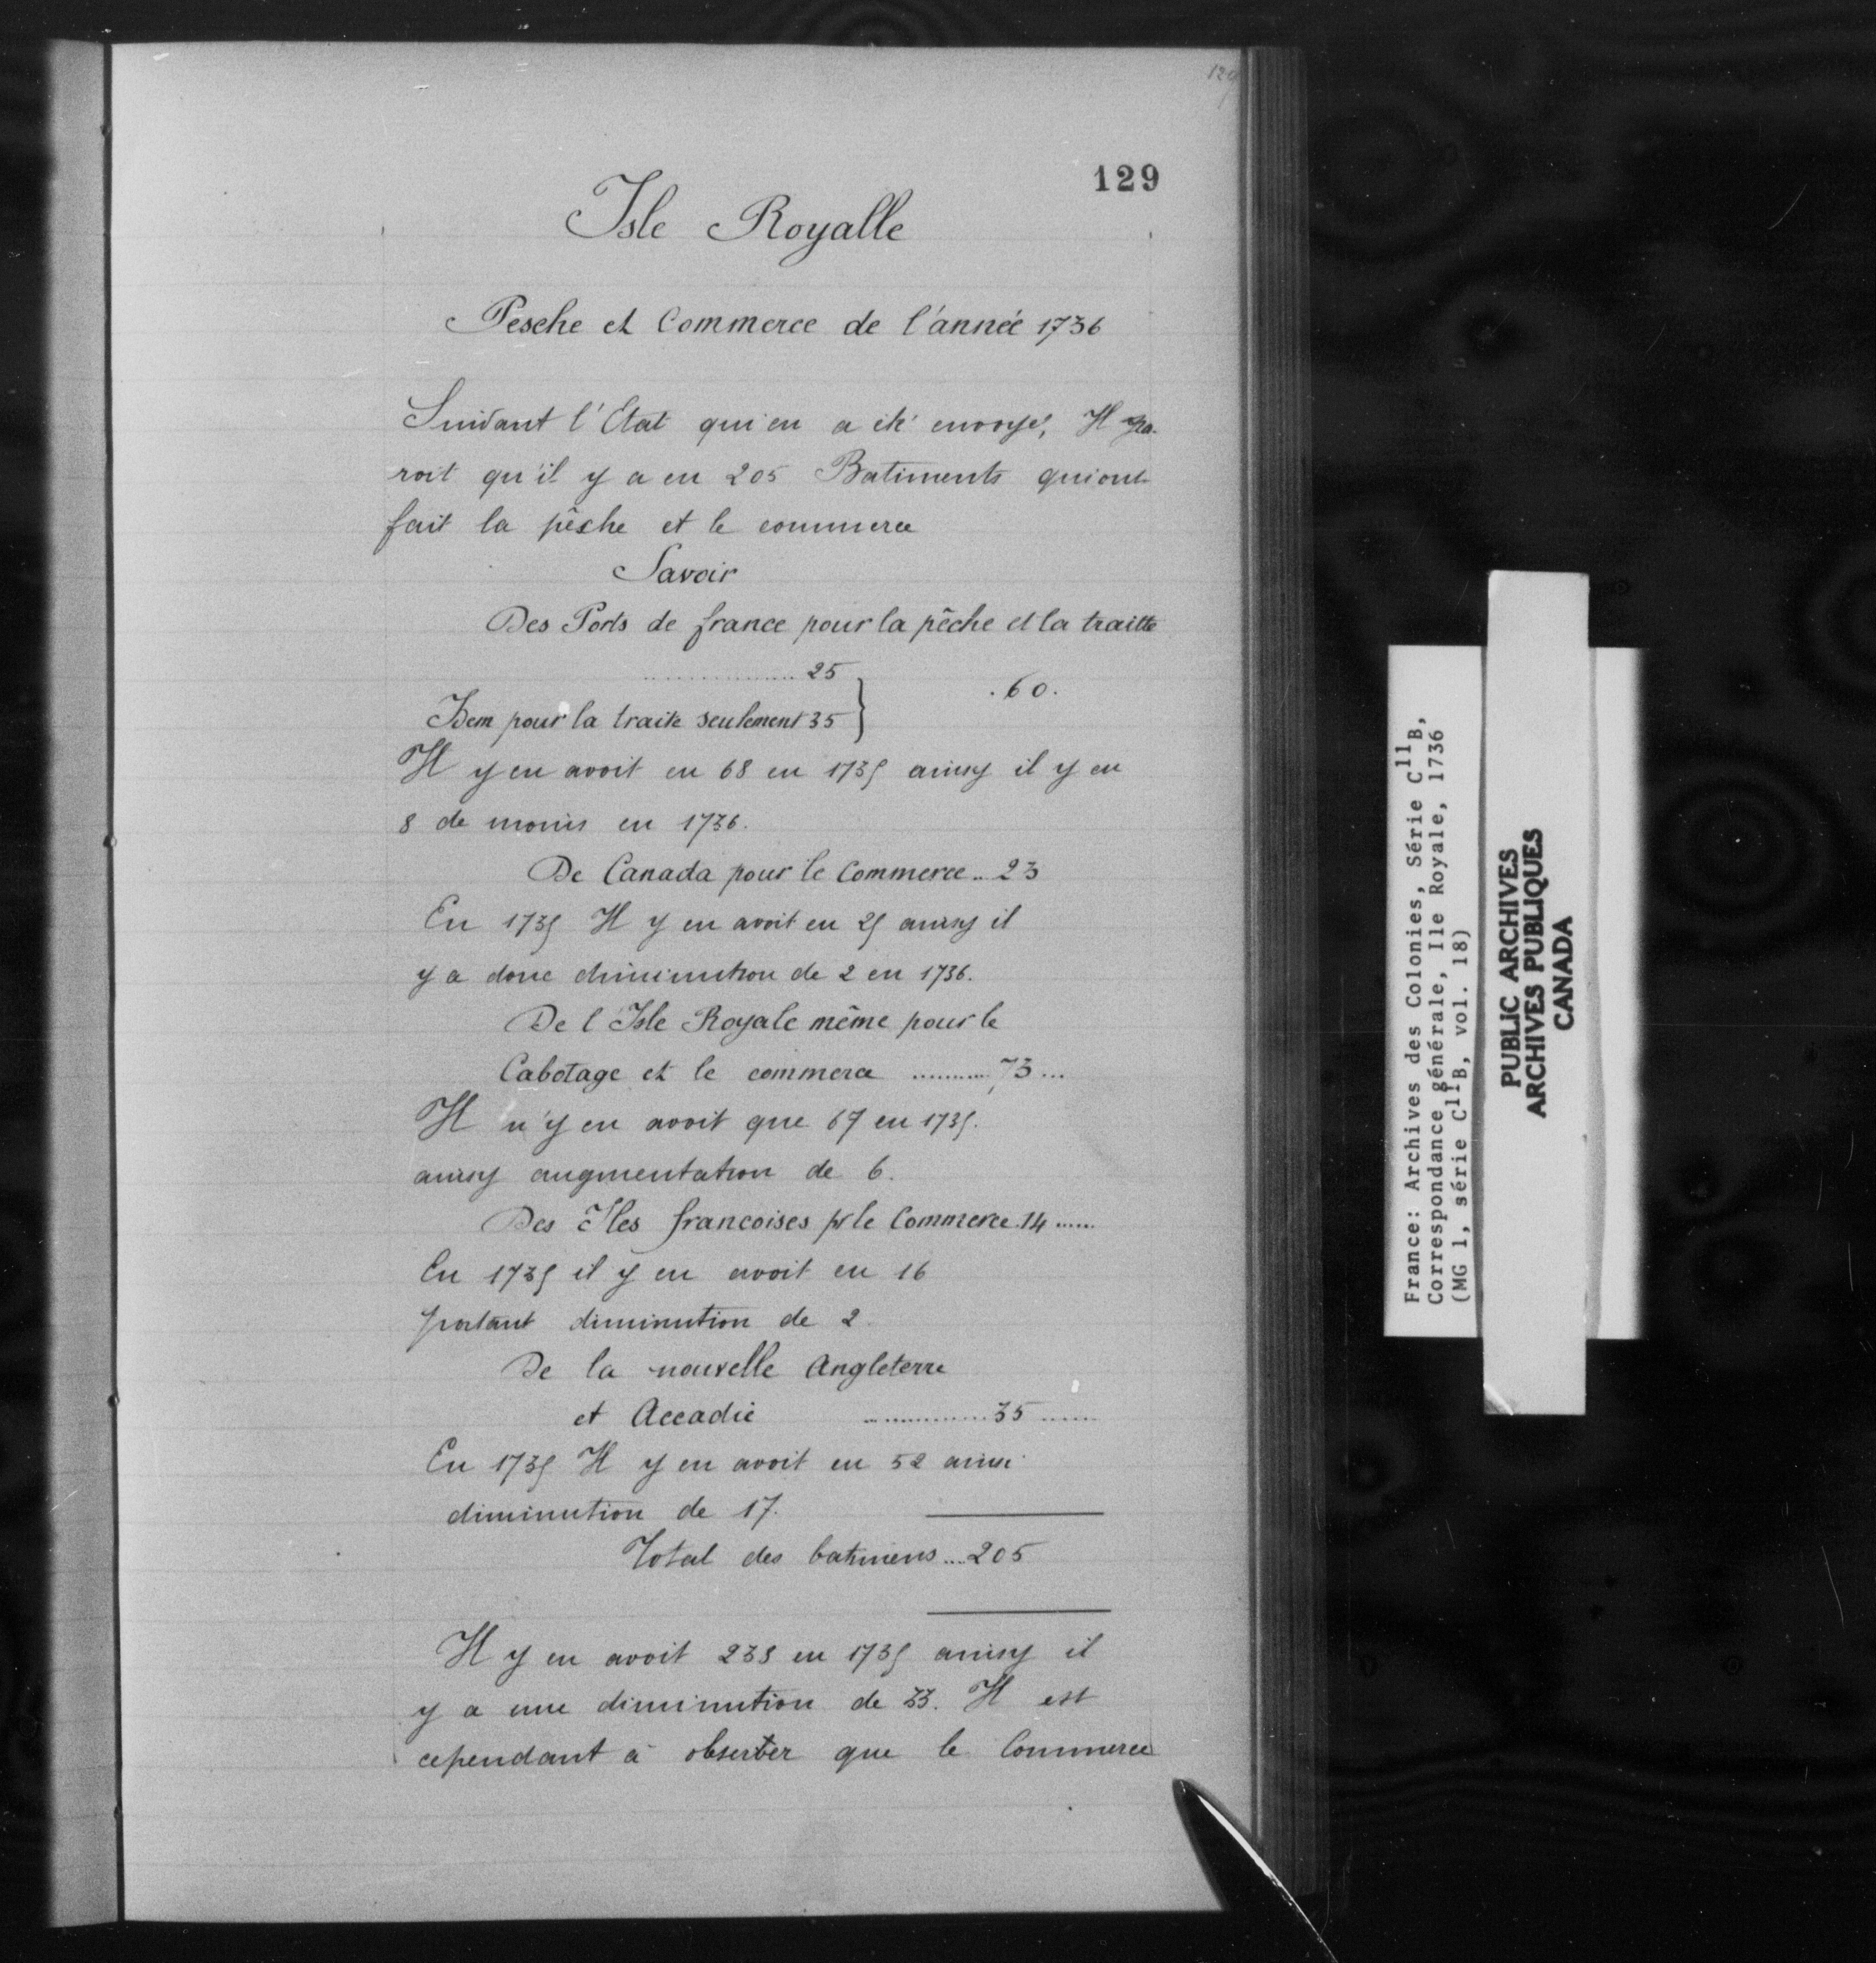 129
129
Isle Royalle
Pesche et Commerce de l'année 1736
Suivant l'Etat qui en a été envoyé, Il pa-
roit qu'il y a eu 205 Batiments qui ont
fait la pêsche et le commerce
Savoir
Des Ports de france pour la pêche et la traitte
................ 25
. 60 .
Idem pour la traite seulement 35 }
Il y en avoit eu 68 en 1735 ainsy il y en
8 de moins en 1736.
De Canada pour le Commerce .. 23
En 1735 Il y en avoit eu 25 ainsy il
y a donc diminution de 2 en 1736.
De l'Isle Royale même pour le
Cabotage et le commerce .......... 73 ...
Il n'y en avoit que 67 en 1735.
ainsy augmentation de 6.
Des Iles francoises pr le Commerce . 14 ......
En 1735 il y en avoit eu 16
partant diminution de 2.
De la nouvelle Angleterre
et Accadie .............. 35 ......
En 1735 Il y en avoit eu 52 ainsi
diminution de 17.
Total des batimens ... 205
Il y en avoit 238 en 1735 ainsy il
y a une diminution de 33. Il est
cependant à observer que le Commerce
France: Archives des Colonies, Série C11B,
Correspondance générale, Ile Royale, 1736
(MG 1, série C11B, vol. 18)
PUBLIC ARCHIVES
ARCHIVES PUBLIQUES
CANADA